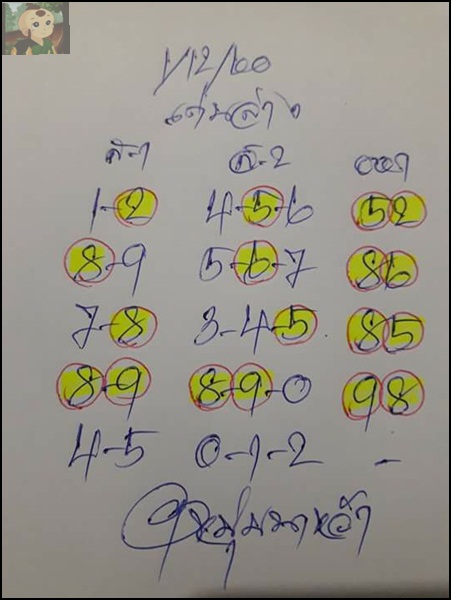 1/12/60
เด่นล่าง
ตัว1 ตัว2 ออก
1-2 4-5-6 52
8-9 5-6-7 86
7-8 3-4-5 85
8-9 8-9-0 98
4-5 0-1-2 -